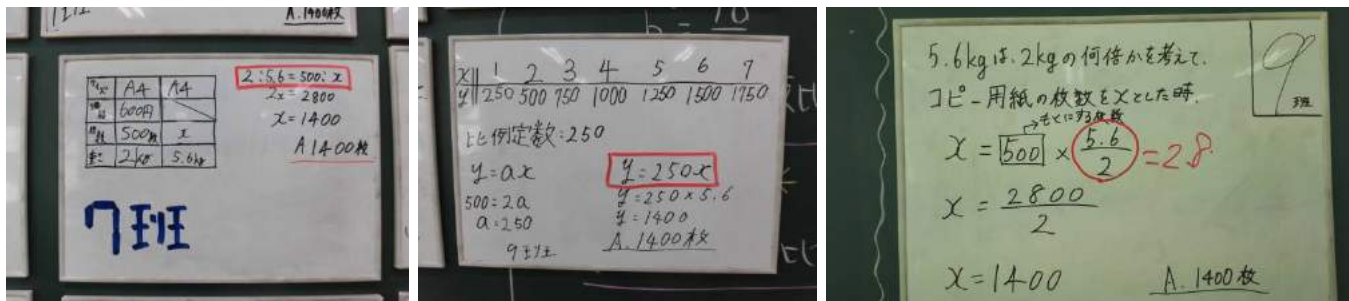 A.1400枚
サイズ A4 A4
600円
500枚 x
重さ 2kg 5.6kg
2:5.6=500:x
2x=2800
x=1400
A1400枚
7班
x 1 2 3 4 5 6 7
y 250 500 750 1000 1250 1500 1750
比例定数:250
y=ax
500=2a
a=250
9班
y=250x
y=250×5.6
y=1400
A.1400枚
5.6kgは、2kgの何倍かを考えて、
コピー用紙の枚数をxとした時、
→もとにする枚数
x=500×5.6/2=2.8
x=2800/2
x=1400
A.1400枚
9班